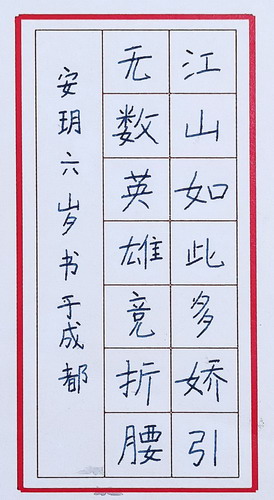 江山如此多娇引
无数英雄竞折腰
安玥六岁书于成都